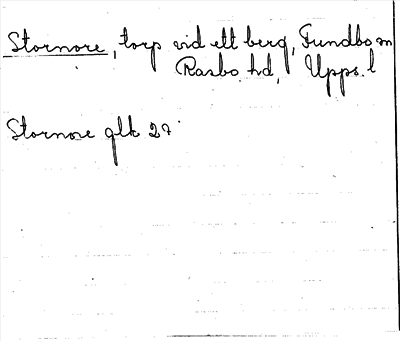 Stornore, torp vid ett berg, Funbo sn
Rasbo hd, Upps. l
Stornore glk 27